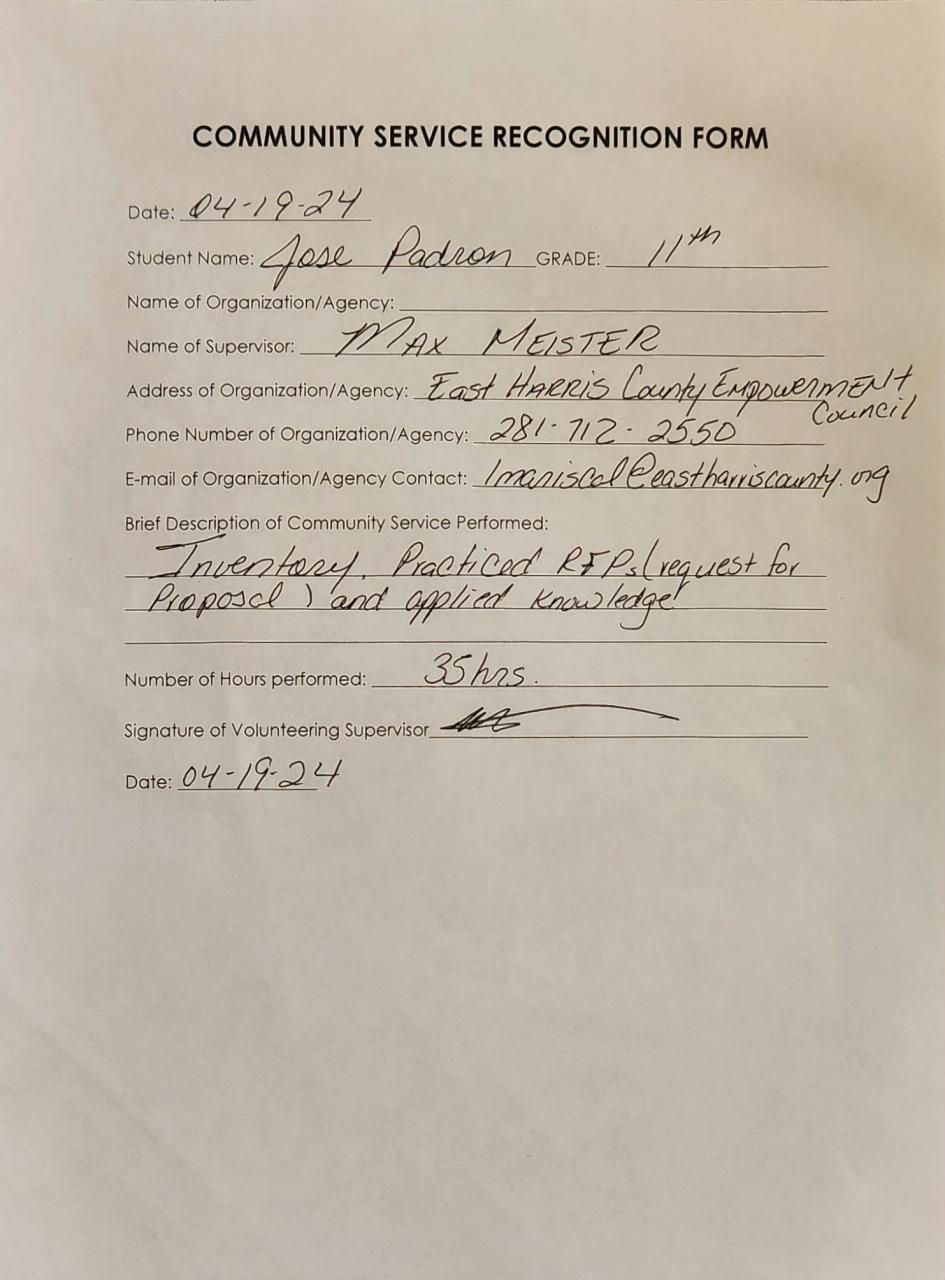 COMMUNITY SERVICE RECOGNITION FORM
Date: 04-19-24
Student Name: Jose Padron GRADE: 11th
Name of Organization/Agency:
Name of Supervisor: MAX MEISTER
Address of Organization/Agency: East HARRIS County EmpowermENt
Council
Phone Number of Organization/Agency: 281-712-2550
E-mail of Organization/Agency Contact: lmariscal@eastharriscounty.org
Brief Description of Community Service Performed:
Inventory, Practiced RFPs (request for
Proposal) and applied knowledge
Number of Hours performed: 35hrs.
Signature of Volunteering Supervisor
Date: 04-19-24